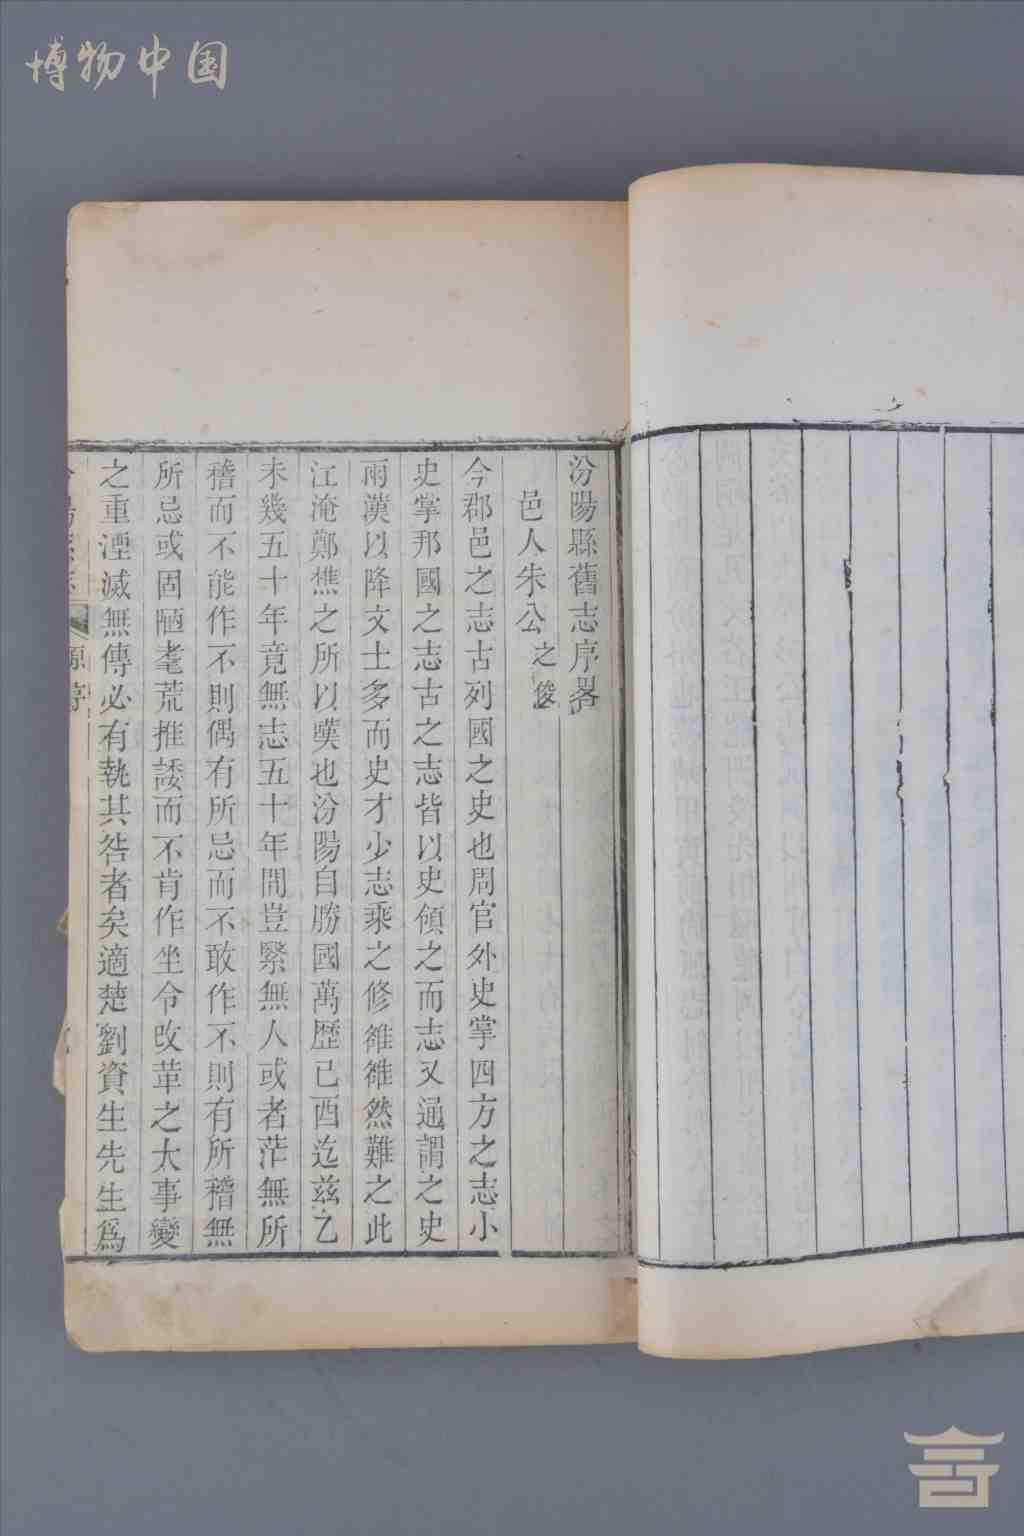 博物中国
汾陽縣舊志序畧
邑人朱公之俊
今郡邑之志古列國之史也周官外史掌四方之志小
史掌邦國之志古之志皆以史領之而志又通謂之史
兩漢以降文士多而史才少志乘之修雖雖然難之此
江淹鄭樵之所以嘆也汾陽自勝國萬歷己酉迄茲乙
未幾五十年竟無志五十年間豈緊無人或者茫無所
稽而不能作不則偶有所忌而不敢作不則有所稽無
所忌或固陋耄荒推諉而不肯作坐令改革之大事變
之重湮滅無傳必有執其咎者矣適楚劉資生先生為